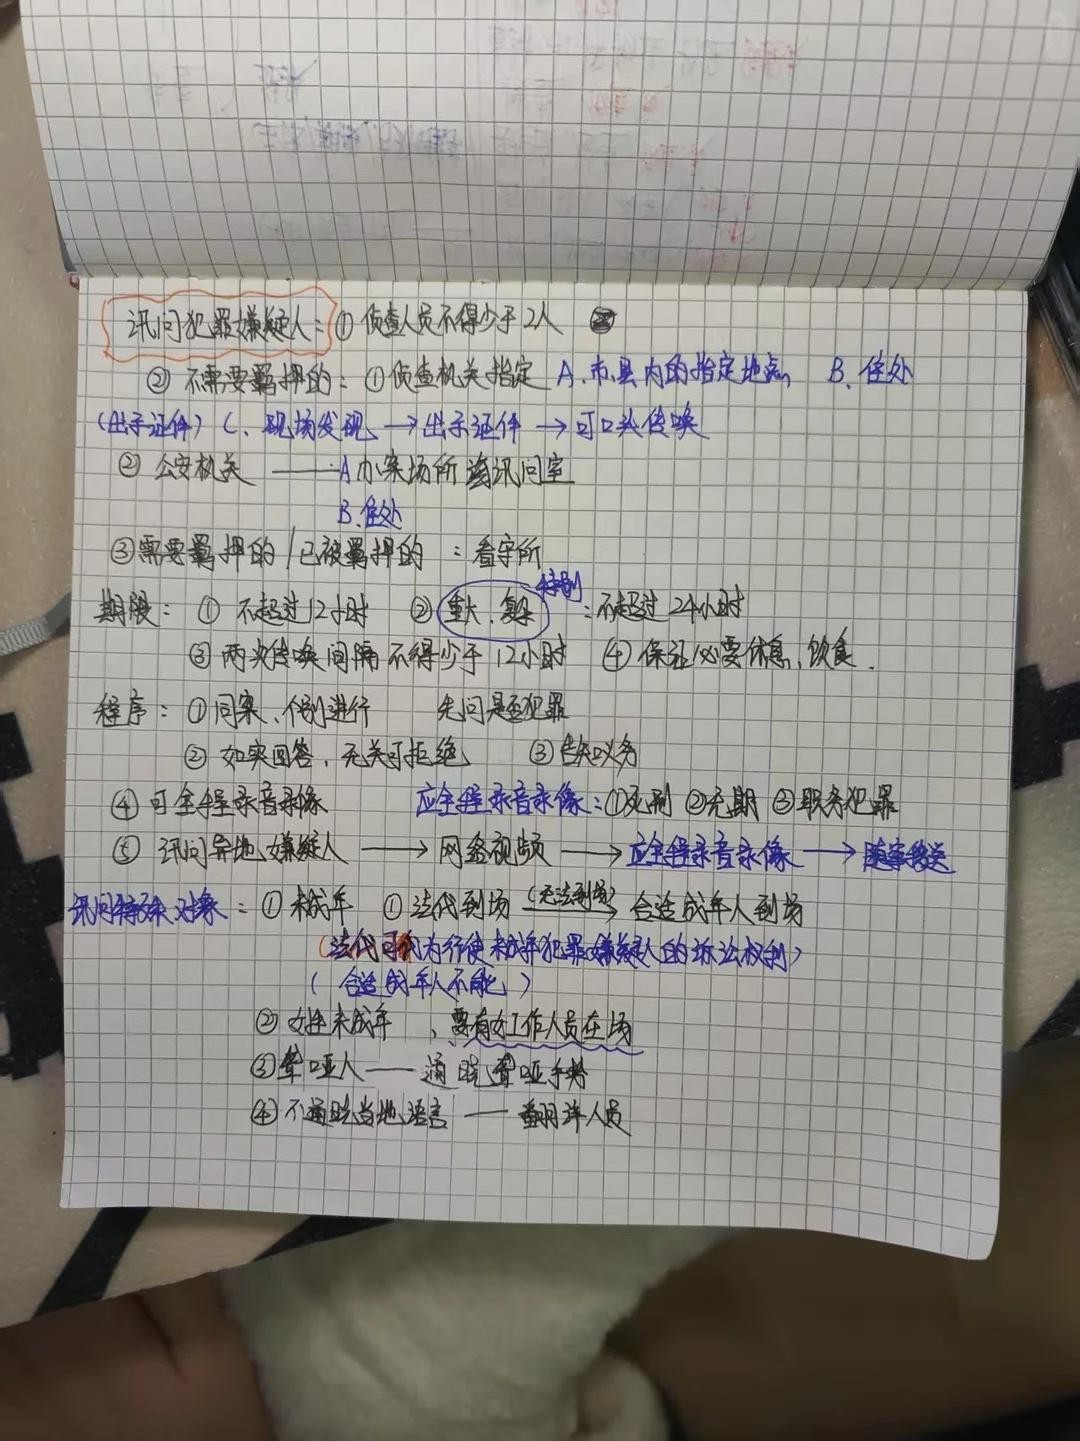 讯问犯罪嫌疑人：① 侦查人员不得少于2人
② 不需要羁押的：①侦查机关指定 A、市、县内的指定地点 B、住处
(出示证件) C、现场发现 → 出示证件 → 可口头传唤
② 公安机关 —— A办案场所 讯问室
B、住处
③需要羁押的/已被羁押的：看守所
特别
期限：① 不超过12小时 ② 重大、复杂：不超过24小时
③ 两次传唤间隔不得少于12小时 ④ 保证必要休息、饮食.
程序：①同案、个别进行 先问是否犯罪
② 如实回答，无关可拒绝 ③告知义务
④ 可全程录音录像 应全程录音录像：①死刑 ②无期 ③职务犯罪
⑤ 讯问异地嫌疑人 → 网络视频 → 应全程录音录像 → 随案移送
讯问特殊对象：① 未成年 ① 法代到场 (无法到场)→ 合适成年人到场
(法代可代为行使未成年犯罪嫌疑人的诉讼权利)
(合适成年人不能)
② 女性未成年，要有女工作人员在场
③聋哑人 —— 通晓聋哑手势
④ 不通晓当地语言 —— 翻译人员